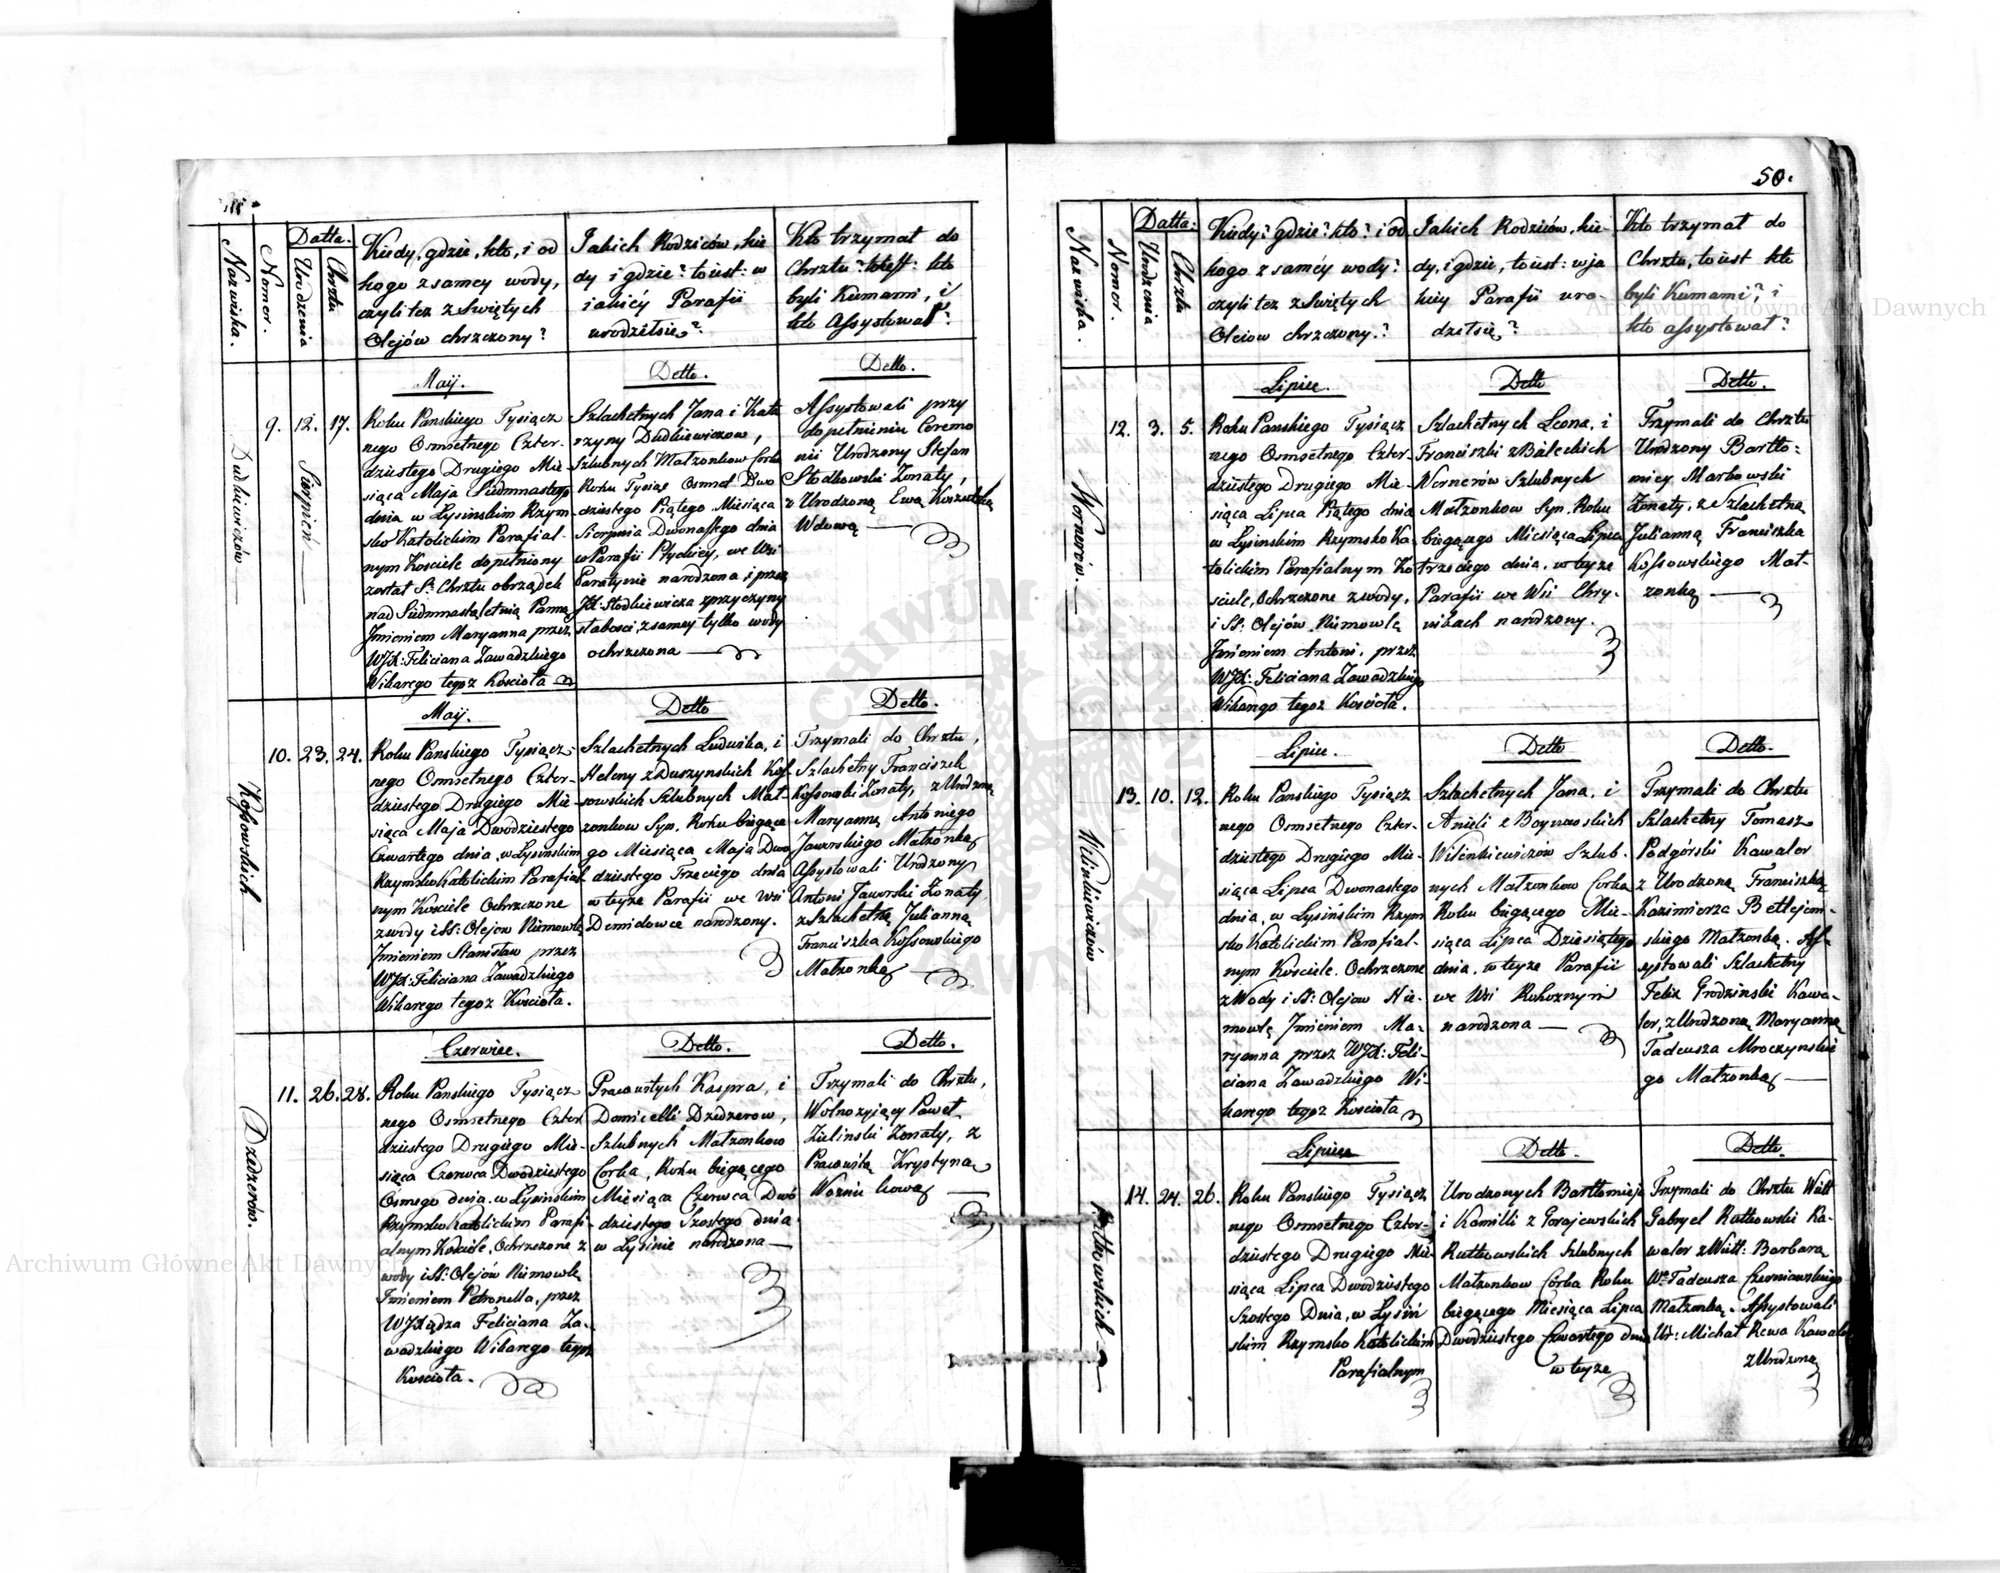 50.
Nazwiska.
Nomer.
Datta.
Urodzenia
Chrztu
Kiedy, gdzie, kto, i od
kogo z samey wody,
czyli tez z Swiętych
Olejów chrzczony?
Jakich Rodziców, kie
dy i gdzie? to iest: w
iakićy Parafii
urodziłsię?
Kto trzymał do
Chrztu? to iest: kto
byli Kumami, i
kto assystował?
May.
Detto.
Detto.
Dudkiewiczów
9. 12. 17.
Sierpień
Roku Panskiego Tysiącz
nego Osmsetnego Czter-
dziestego Drugiego Mie-
siąca Maja Siedmnastego
dnia w Łysinskim Rzym
sko Katolickim Parafial-
nym Kosciele dopełniony
został St. Chrztu obrządek
nad Siedmnastąletnią Panną
Jmieniem Maryanna przez
WJX: Feliciana Zawadzkiego
Wikarego tegoz Kościoła
Szlachetnych Jana i Kata
rzyny Dudkiewiczow,
Szlubnych Małzonkow Corka
Roku Tysiąc Osmset Dwu
dziestego Piątego Miesiąca
Sierpnia Dwonastego dnia
w Parafii Płyckiey, we Wsi
Paratynie narodzona i przez
JX: Stodkiewicza z przyczyny
słabosci, z samey tylko wody
ochrzczona
Assystowali przy
dopełnieniu Ceremo
nii Urodzony Stefan
Słodkowski Zonaty,
z Urodzoną Ewą
Wdową
May.
Detto
Detto.
Kossowskich
10. 23. 24.
Roku Panskiego Tysiącz-
nego Osmsetnego Czter-
dziestego Drugiego Mie-
siąca Maja Dwodziestego
Czwartego dnia w Łysinskim
Rzymsko Katolickim Parafial
nym Kosciele Ochrzczone
z wody i SS: Olejow Niemowle
Jmieniem Stanisław przez
WJX: Feliciana Zawadzkiego
Wikarego tegoz Kosciola.
Szlachetnych Ludwika, i
Heleny z Duszynskich Kos-
sowskich Szlubnych Mał-
zonkow Syn, Roku biegące
go Miesiąca Maja Dwo
dziestego Trzeciego dnia
w teyze Parafii we wsi
Demidowce narodzony.
Trzymali do Chrztu,
Szlachetny Franciszek
Kossowski Zonaty, z Urodzoną
Maryanną Antoniego
Jaworskiego Małzonką
Assystowali Urodzony
Antoni Jaworski Zonaty
z Szlachetną Julianną
Franciszka Kossowskiego
Małzonką
Czerwiec.
Detto.
Detto.
Dzedzerów.
11. 26. 28.
Roku Panskiego Tysiącz
nego Osmsetnego Czter
dziestego Drugiego Mie-
siąca Czerwca Dwodziestego
Osmego dnia w Łysinskim
Rzymsko Katolickim Parafi-
alnym Kosciele, Ochrzczone z
wody i SS: Olejów Niemowle
Jmieniem Petronella, przez
WJXiądza Feliciana Za-
wadzkiego Wikarego tegoz
Kosciola.
Pracowitych Kaspra, i
Domicelli Dzedzerow,
Szlubnych Małzonkow
Corka, Roku biegącego
Miesiąca Czerwca Dwó
dziestego Szostego dnia
w Łysinie narodzona
Trzymali do Chrztu,
Wolnozyjący Paweł
Zielinski Zonaty, z
Pracowitą Krystyną
Wozniukową
Nazwiska.
Nomer.
Datta:
Urodzenia
Chrztu
Kiedy? gdzie? kto? i od
kogo z saméy wody?
czyli tez z Swiętych
Oleiow chrzczony.?
Jakich Rodziców, kie-
dy, i gdzie, to iest: w ja
kiey Parafii uro-
dziłsię?
Kto trzymał do
Chrztu, to iest kto
byli Kumami, i
kto assystował?
Lipiec.
Detto
Detto.
Wornerów.
12. 3. 5.
Roku Panskiego Tysiącz
nego Osmsetnego Czter-
dziestego Drugiego Mie
siąca Lipca Piątego dnia
w Łysinskim Rzymsko Ka-
tolickim Parafialnym Ko
sciele, Ochrzczone z wody,
i SS: Olejów Niemowlę
Jmieniem Antoni, przez
WJX: Feliciana Zawadzkiego
Wikarego tegoz Kościoła.
Szlachetnych Leona, i
Franciszki z Bialeckich
Wornerów Szlubnych
Małzonkow Syn, Roku
biegącego Miesiąca Lipca
trzeciego dnia, w teyze
Parafii we Wsi Chry-
nikach narodzony.
Trzymali do Chrztu
Urodzony Bartło:
miey Markowski
Zonaty, z Szlachetną
Julianną Franciszka
Kossowskiego Mał-
zonką
Lipiec.
Detto
Detto.
Wilinkiewiczów
13. 10. 12.
Roku Panskiego Tysiącz
nego Osmsetnego Czter-
dziestego Drugiego Mie-
siąca Lipca Dwonastego
dnia, w Łysińskim Rzym
sko Katolickim Parafial-
nym Kosciele. Ochrzczone
z Wody i SS: Olejow Nie-
mowlę Jmieniem Ma-
ryanna przez WJX: Feli-
ciana Zawadzkiego Wi-
karego tegoz Kosciola
Szlachetnych Jana, i
Anieli z
Wilinkiewiczów Szlub-
nych Małzonkow Corka
Roku biegącego Mie-
siąca Lipca Dziesiątego
dnia, w teyze Parafii
we Wsi Rokoznym
narodzona
Trzymali do Chrztu
Szlachetny Tomasz
Podgórski Kawaler
z Urodzoną Franciszką
Kazimierza Betlejem-
skiego Małzonką. As-
systowali Szlachetny
Felix Grodzinski Kawa-
ler, z Urodzoną Maryanną
Tadeusza Mroczynskie
go Małzonką
Lipiec
Detto.
Detto.
Rutkowskich
14. 24. 26.
Roku Panskiego Tysiącz
nego Osmsetnego Czter-
dziestego Drugiego Mie-
siąca Lipca Dwodziestego
Szostego Dnia, w Łysiń
skim Rzymsko Katolickim
Parafialnym
Urodzonych Bartłomieja
i Kamilli z Gorajewskich
Rutkowskich Szlubnych
Małzonkow Córka Roku
biegącego Miesiąca Lipca
Dwodziestego Czwartego dnia
w teyze
Trzymali do Chrztu Wiel:
Gabryel Rutkowski Ka-
waler z Wiel: Barbarą
Tadeusza Czerniawskiego
Małzonką. Assystowali
Ur: Michał Rewa Kawaler
z Urodzoną
Archiwum Główne Akt Dawnych
Archiwum Główne Akt Dawnych